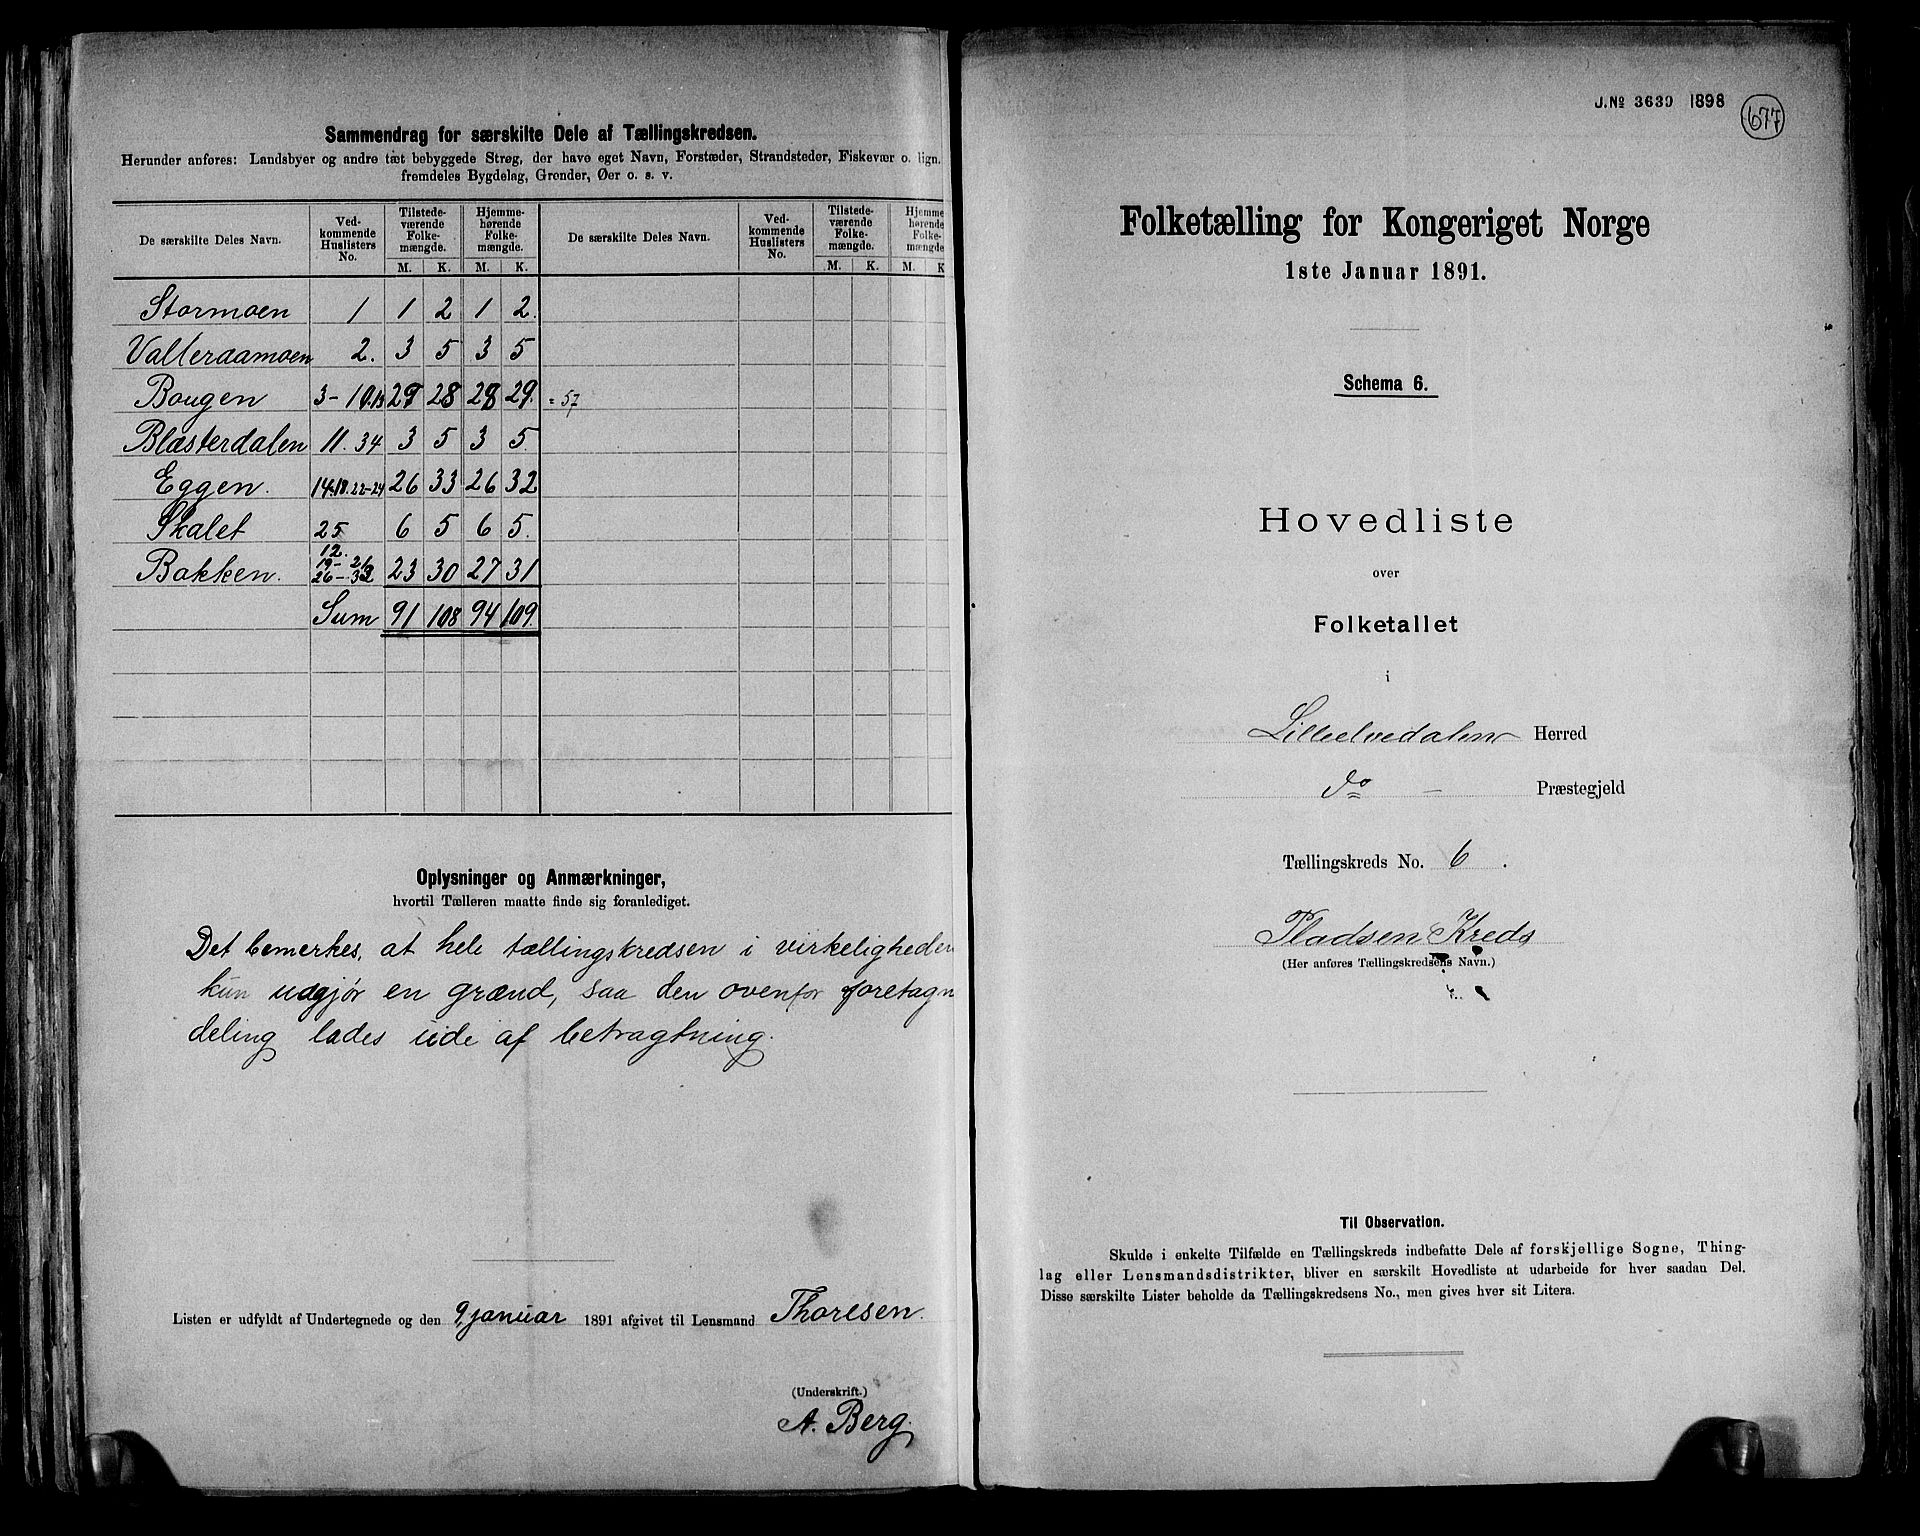 Sammendrag for særskilte Dele af Tællingskredsen.
Herunder anføres: Landsbyer og andre tæt bebyggede Strøg, der have eget Navn, Forstæder, Strandsteder, Fiskevær o. lign.
fremdeles Bygdelag, Grender, Øer o. s. v.
De særskilte Deles Navn. Ved-kommende Huslisters No. Tilstede-værende Folke-mængde. Hjemme-hørende Folke-mængde. De særskilte Deles Navn. Ved-kommende Huslisters No. Tilstede-værende Folke-mængde. Hjemme-hørende Folke-mængde
M. K. M. K. M. K. M. K
Stormoen 1 1 2 1 2.
Valleraamoen 2. 3 5 3 5
Bougen 3-10.13 27 28 28 29. = 57
Blæsterdalen 11. 34 3 5 3 5.
Eggen. 14-18. 22-24 26 33 26 32
Skalet 25 6 5 6 5.
Bakken. 12. 19-21 26-33 23 30 27 31
Sum 91 108 94 109.
Oplysninger og Anmærkninger,
hvortil Tælleren maatte finde sig foranlediget.
Det bemerkes, at hele tællingskredsen i virkeligheden
kun udgjør en grænd, saa den ovenfor foretagn
deling lades ude af betragtning.
Listen er udfyldt af Undertegnede og den 9. januar 1891 afgivet til Lensmand Thoresen.
(Underskrift.)
A. Berg.
J. No 3630 1898
677
Folketælling for Kongeriget Norge
1ste Januar 1891.
Schema 6.
Hovedliste
over
Folketallet
i
Lilleelvedalens Herred
do - Præstegjeld
Tællingskreds No. 6.
Pladsen Kreds
(Her anføres Tællingskredsens Navn.)
Til Observation.
Skulde i enkelte Tilfælde en Tællingskreds indbefatte Dele af forskjellige Sogne, Thing-
lag eller Lensmandsdistrikter, bliver en særskilt Hovedliste at udarbeide for hver saadan Del.
Disse særskilte Lister beholde da Tællingskredsens No., men gives hver sit Litera.